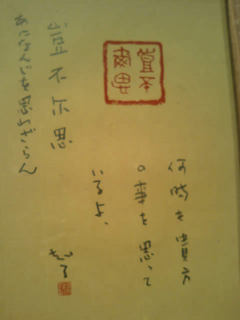 何時も貴方
の事を思って
いるよ、
豈不
爾思
豈不尓思
あになんじを思わざらん